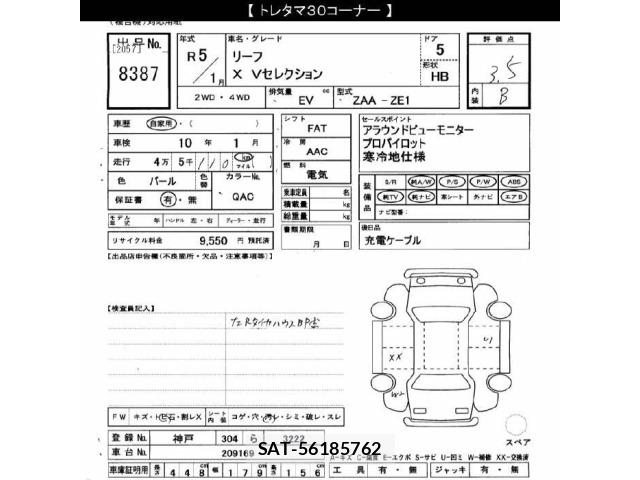 【 トレタマ30コーナー 】
(複合機)対応用紙
出品No.
[2057]
8387
年式
R 5
/ 1月
車名・グレード
リーフ
X Vセレクション
ドア
5
形状
HB
評価点
3.5
内装
B
2WD・4WD
排気量
cc
EV
型式
ZAA - ZE1
車歴 自家用・( )
車検 10 年 1 月
走行 4万 5千 110 km マイル
色 パール
色替
カラーNo.
QAC
保証書 有・無
モデル年式 年 ハンドル 左・右 ディーラー・並行
リサイクル料金 9,550 円 預託済
シフト
FAT
冷房
AAC
燃料
電気
乗車定員 名
積載量 kg
総重量 kg
書類期限
月 日
セールスポイント
アラウンドビューモニター
プロパイロット
寒冷地仕様
装備品
S/R 純A/W P/S P/W ABS
純TV 純ナビ 革シート 外ナビ エアB
ナビ型番:
後日品
充電ケーブル
【出品店申告欄(不良箇所・欠品・注意事項等)】
【検査員記入】
XX
U
W2
FW キズ・飛石・割レX
シート内装
コゲ・穴・汚レ・シミ・破レ・スレ
登録No. 神戸 304 ら 3222
車台No. 209169
車庫証明用 長さ 448cm 幅 179cm 高さ 156
SAT-56185762
スペア
A-キズ E-エクボ S-サビ U-凹ミ W-補修 XX-交換済
工具 有・無 ジャッキ 有・無